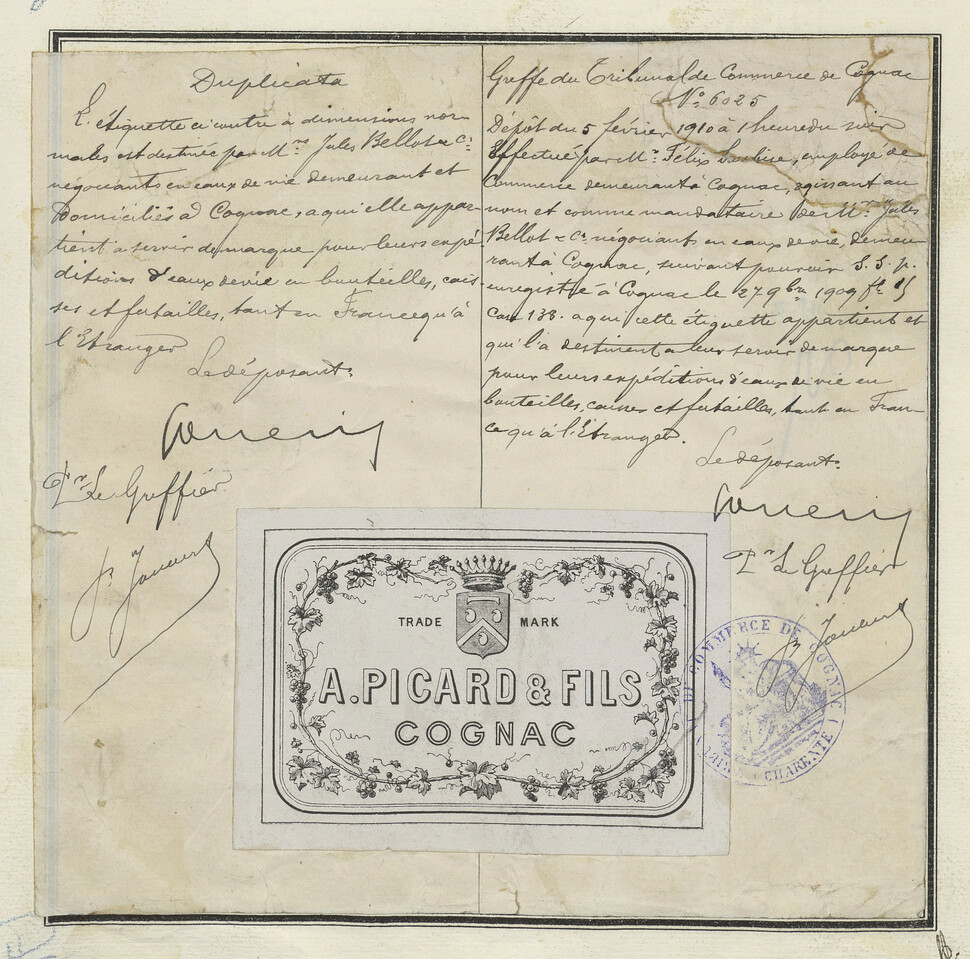 Duplicata
L'étiquette ci contre à dimensions nor-
males est destinée par M.rs Jules Bellot & Cie
négociants en eaux de vie demeurant et
domiciliés à Cognac, a qui elle appar-
tient a servir de marque pour leurs expé
ditions d'eaux de vie en bouteilles, cais-
ses et futailles, tant en France qu'à
l'Etranger
Le déposant.
Pr Le Greffier
Greffe du Tribunal de Commerce de Cognac
No. 6025
Dépôt du 5 février 1910 à 1 heure du soir
Effectué par Mr. Félix, employé de
Commerce demeurant à Cognac, agissant au
nom et comme mandataire de Mrs. Jules
Bellot & Cie négociants en eaux de vie, demeu
rant à Cognac, suivant pouvoir S.S.p.
enregistré à Cognac le 27 9bre 1909 fo
Case 138. a qui cette étiquette appartient et
qu'il a destinent a leur servir de marque
pour leurs expéditions d'eaux de vie en
bouteilles, caisses et futailles, tant en Fran-
ce qu'à l'Etranger.
Le déposant.
Pr Le Greffier
TRADE MARK
A. PICARD & FILS
COGNAC
COMMERCE DE COGNAC
CHARENTE